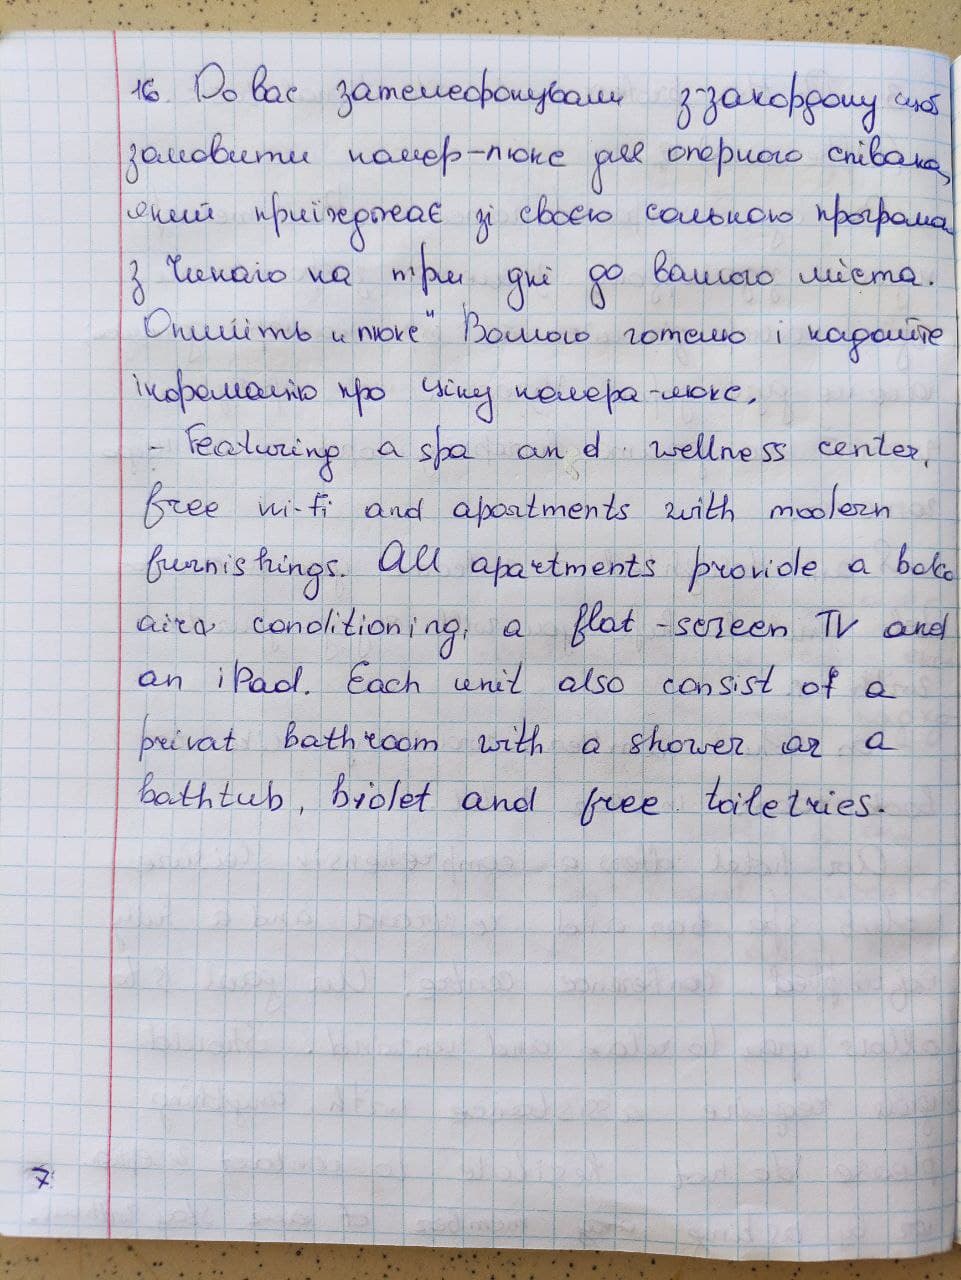 16. До вас зателефонували з-закордону щоб
замовити номер-люкс для оперного співака,
який приїжджає зі своєю сольною програма
з Чикаго на три дні до вашого міста.
Опишіть "люкс" Вашого готелю і надайте
інформацію про ціну номера-люкс.
- Featuring a spa and wellness center,
free wi-fi and apartments with modern
furnishings. All apartments provide a
air conditioning, a flat-screen TV and
an iPad. Each unit also consist of a
privat bathroom with a shower or a
bathtub, biolet and free toiletries.
7